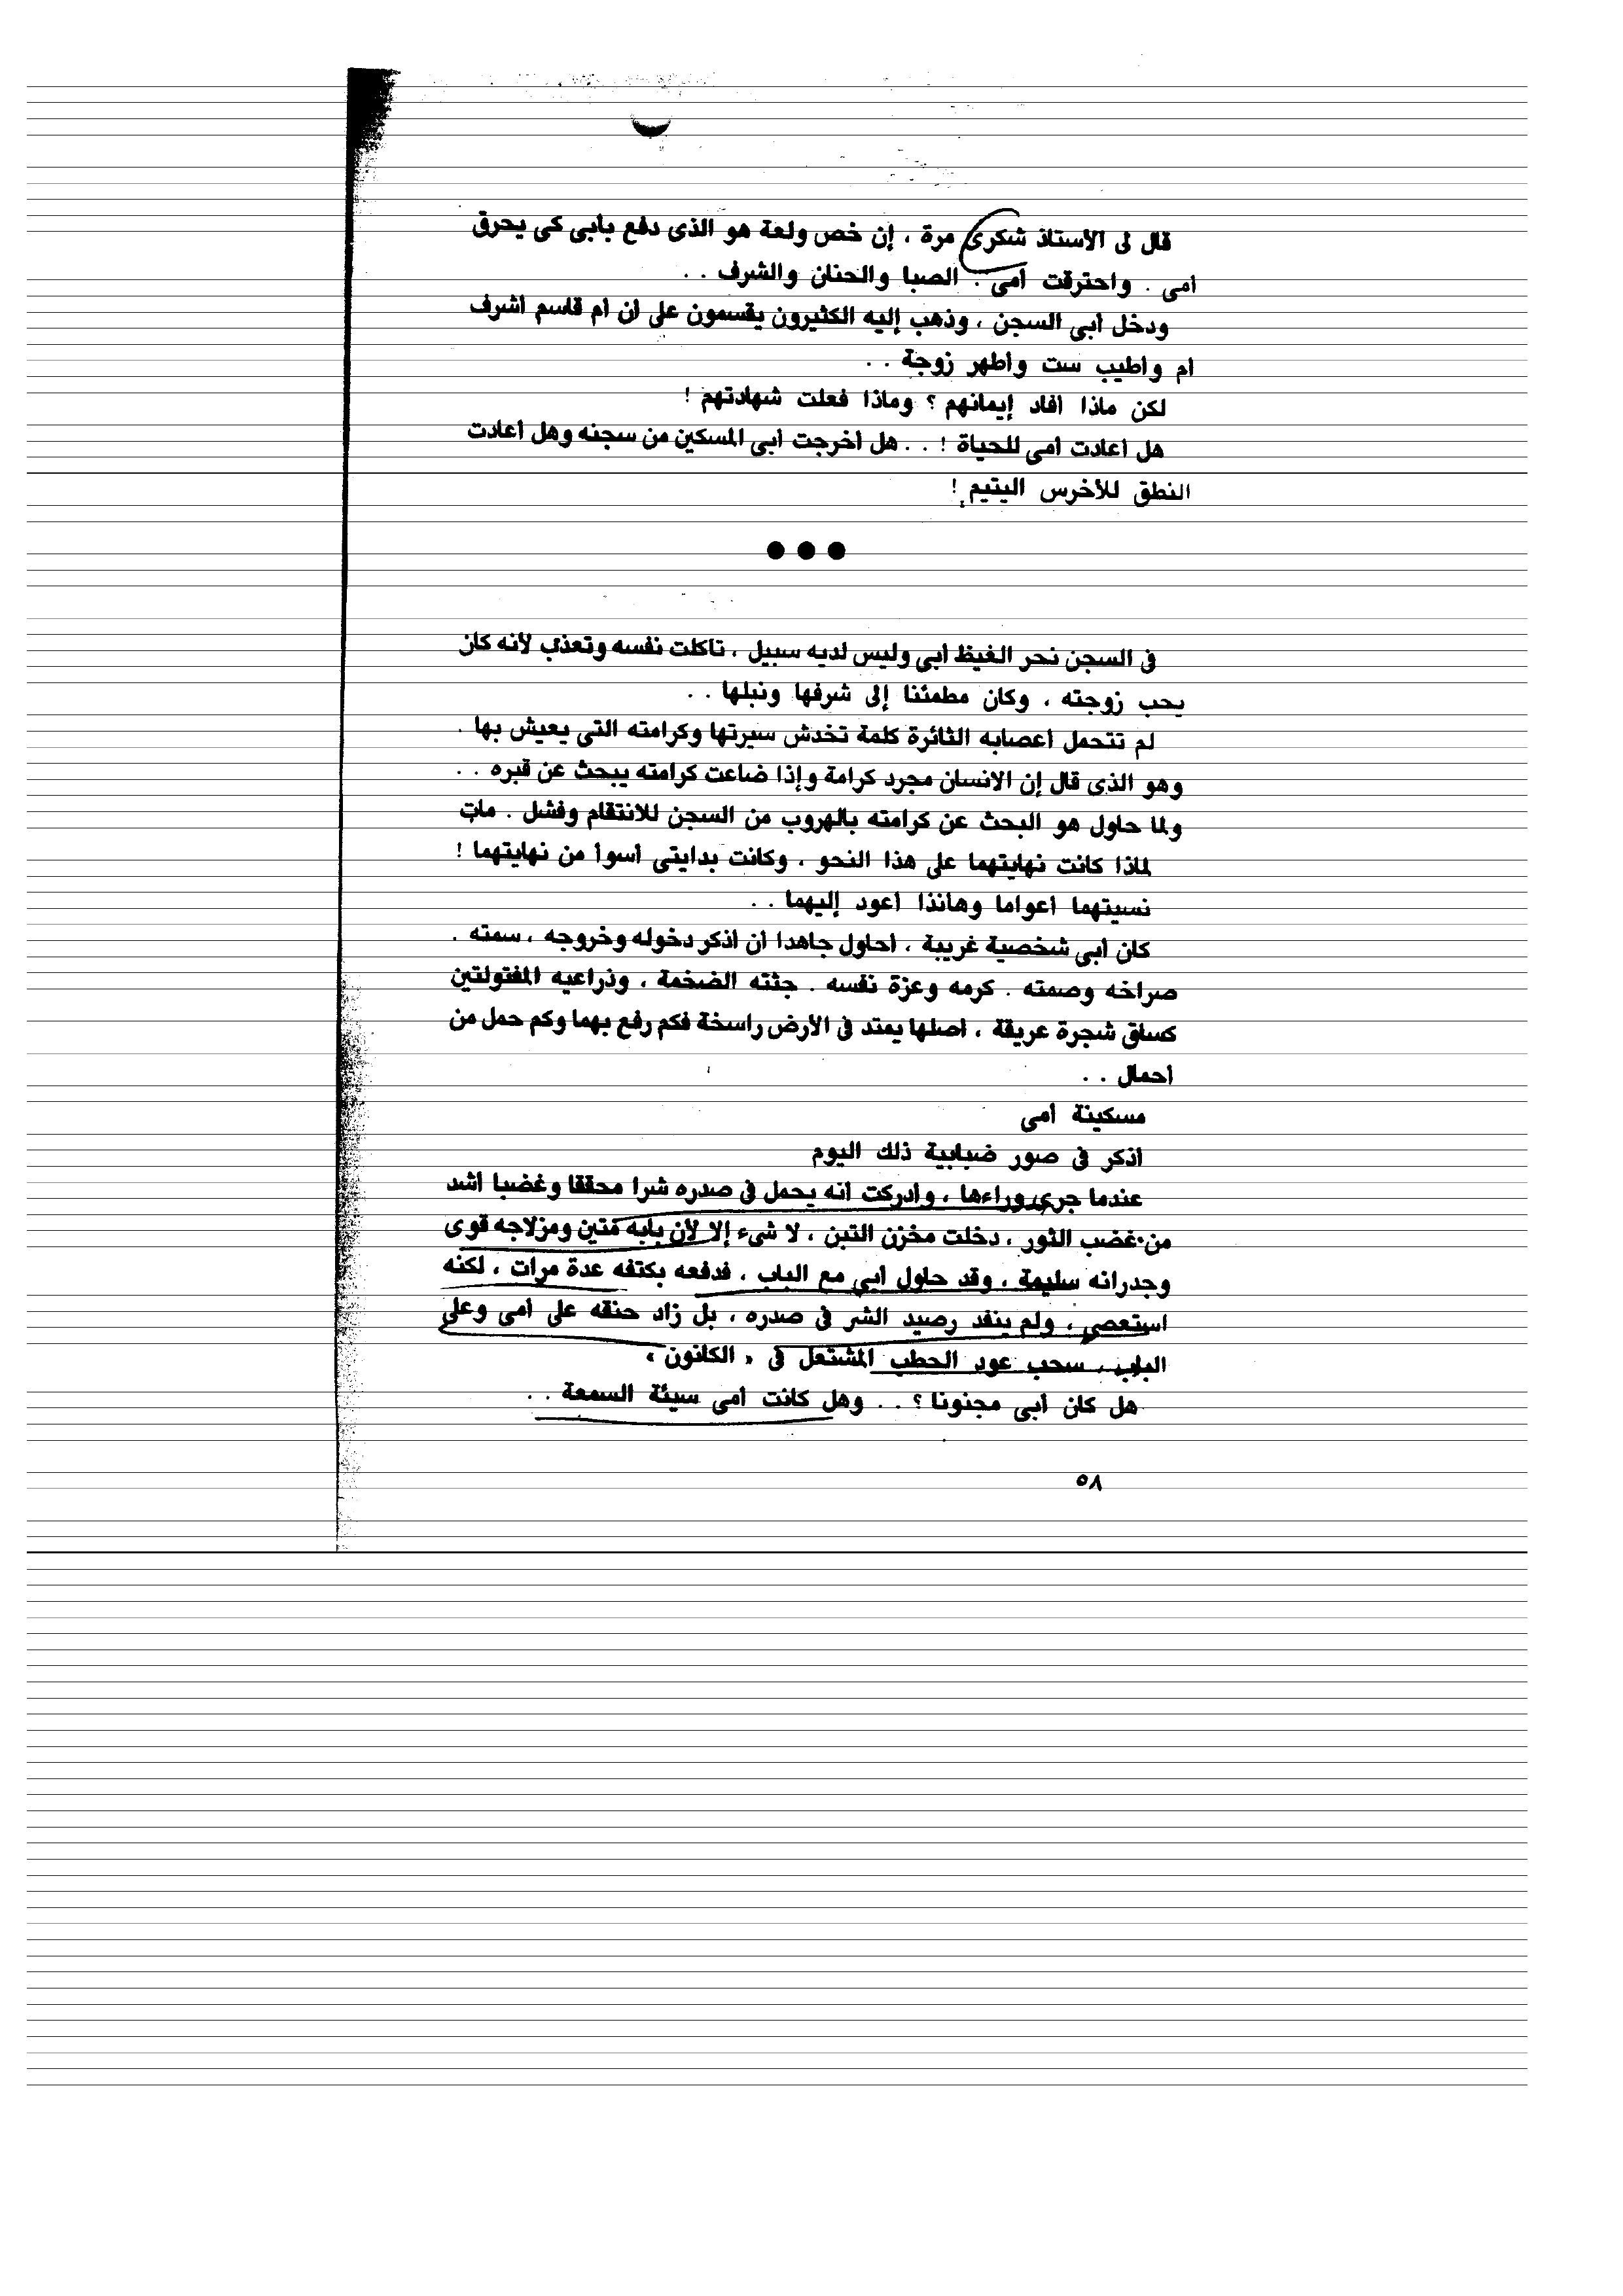 قال لى الأستاذ شكرى مرة ، إن خص ولعة هو الذى دفع بأبى كى يحرق
أمى . واحترقت أمى . الصبا والحنان والشرف . .
ودخل أبى السجن ، وذهب إليه الكثيرون يقسمون على أن أم قاسم أشرف
أم وأطيب ست وأطهر زوجة . .
لكن ماذا أفاد إيمانهم ؟ وماذا فعلت شهادتهم !
هل أعادت أمى للحياة ! . . هل أخرجت أبى المسكين من سجنه وهل أعادت
النطق للأخرس اليتيم !
●●●
فى السجن نحر الغيظ أبى وليس لديه سبيل ، تآكلت نفسه وتعذب لأنه كان
يحب زوجته ، وكان مطمئنا إلى شرفها ونبلها . .
لم تتحمل أعصابه الثائرة كلمة تخدش سيرتها وكرامته التى يعيش بها .
وهو الذى قال إن الانسان مجرد كرامة وإذا ضاعت كرامته يبحث عن قبره . .
ولما حاول هو البحث عن كرامته بالهروب من السجن للانتقام وفشل . مات
لماذا كانت نهايتهما على هذا النحو ، وكانت بدايتى أسوأ من نهايتهما !
نسيتهما أعواما وهأنذا أعود إليهما . .
كان أبى شخصية غريبة ، أحاول جاهدا أن أذكر دخوله وخروجه ، سمته .
صراخه وصمته . كرمه وعزة نفسه . جثته الضخمة ، وذراعيه المفتولتين
كساق شجرة عريقة ، أصلها يمتد فى الأرض راسخة فكم رفع بهما وكم حمل من
أحمال . .
مسكينة أمى
أذكر فى صور ضبابية ذلك اليوم
عندما جرى وراءها ، وأدركت أنه يحمل فى صدره شرا محققا وغضبا أشد
من غضب الثور ، دخلت مخزن التبن ، لا شىء إلا لأن بابه متين ومزلاجه قوى
وجدرانه سليمة ، وقد حاول أبى مع الباب ، فدفعه بكتفه عدة مرات ، لكنه
استعصى ، ولم ينفد رصيد الشر فى صدره ، بل زاد حنقه على أمى وعلى
الباب ، سحب عود الحطب المشتعل فى « الكانون »
هل كان أبى مجنونا ؟ . . وهل كانت أمى سيئة السمعة . .
٥٨